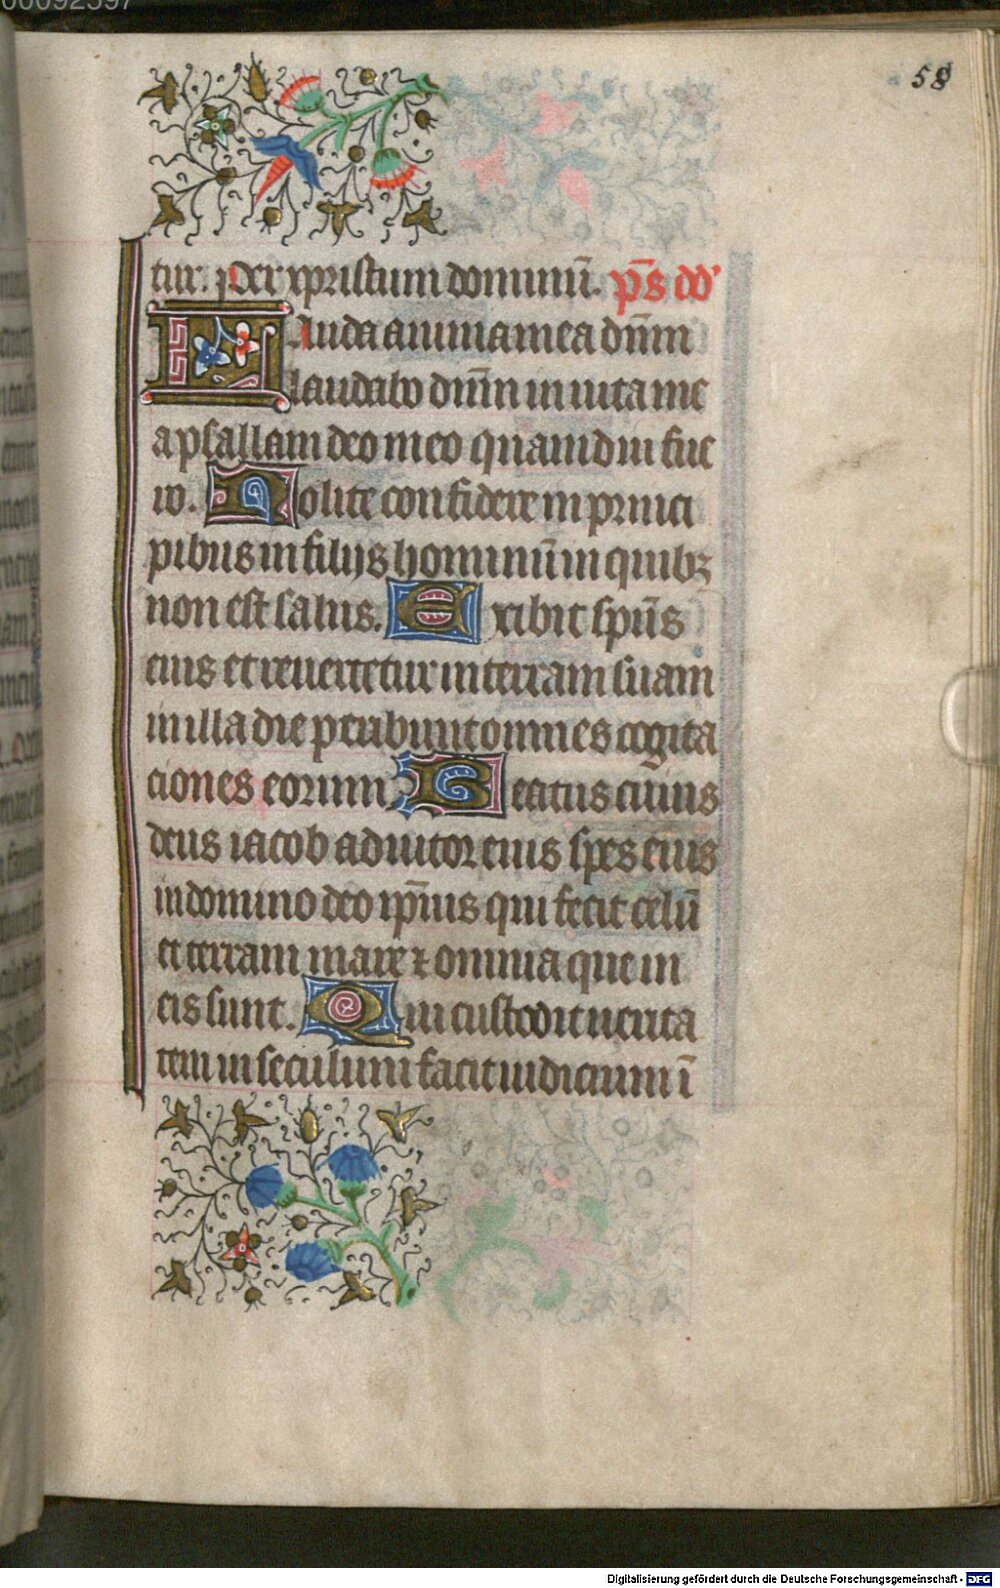 00092597
58
tur. Per xpristum dominū. ps̄ dd'
Lauda anima mea dn̄m
laudabo dn̄m in uita me
a psallam deo meo quamdiu fue
ro. Nolite confidere in princi
pibus in filijs hominū in quibꝫ
non est salus. Exibit sp̄us
eius et reuertetur in terram suam
in illa die peribunt omnes cogita
ciones eorum. Beatus cuius
deus iacob adiutor eius spes eius
in domino deo ip̄ius qui fecit celū
et terram mare ⁊ omnia que in
eis sunt. Qui custodit uerita
tem in seculum facit iudicium ī
Digitalisierung gefördert durch die Deutsche Forschungsgemeinschaft - DFG